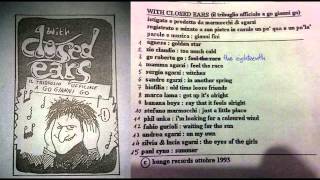 with
closed
ears
IL TRIBUTO UFFICIALE
A GO GIANNI GO
WITH CLOSED EARS (il tributo ufficiale a go gianni go)
istigato e prodotto da marmocchi & sgarzi
registrato e mixato a san pietro in casale un po' qua e un po' la'
parole e musica : gianni fini
1 agnera : golden star
2 zio claudio : too much cold
3 go roberta go : feel the race the eighteenth
4 mamma sgarzi : feel the race
5 sergio sgarzi : witches
6 sandro sgarzi : in another spring
7 biofilia : old time loose friends
8 marco lama : got up it's alright
9 banana boys : say that it feels alright
10 stefano marmocchi : just a little place
11 phil anka : i'm looking for a coloured wind
12 fabio gurioli : waiting for the sun
13 andrea sgarzi : on my own
14 silvia & lucia sgarzi : the eyes of the girls
15 paul zyno : summer
c bongo records ottobre 1993